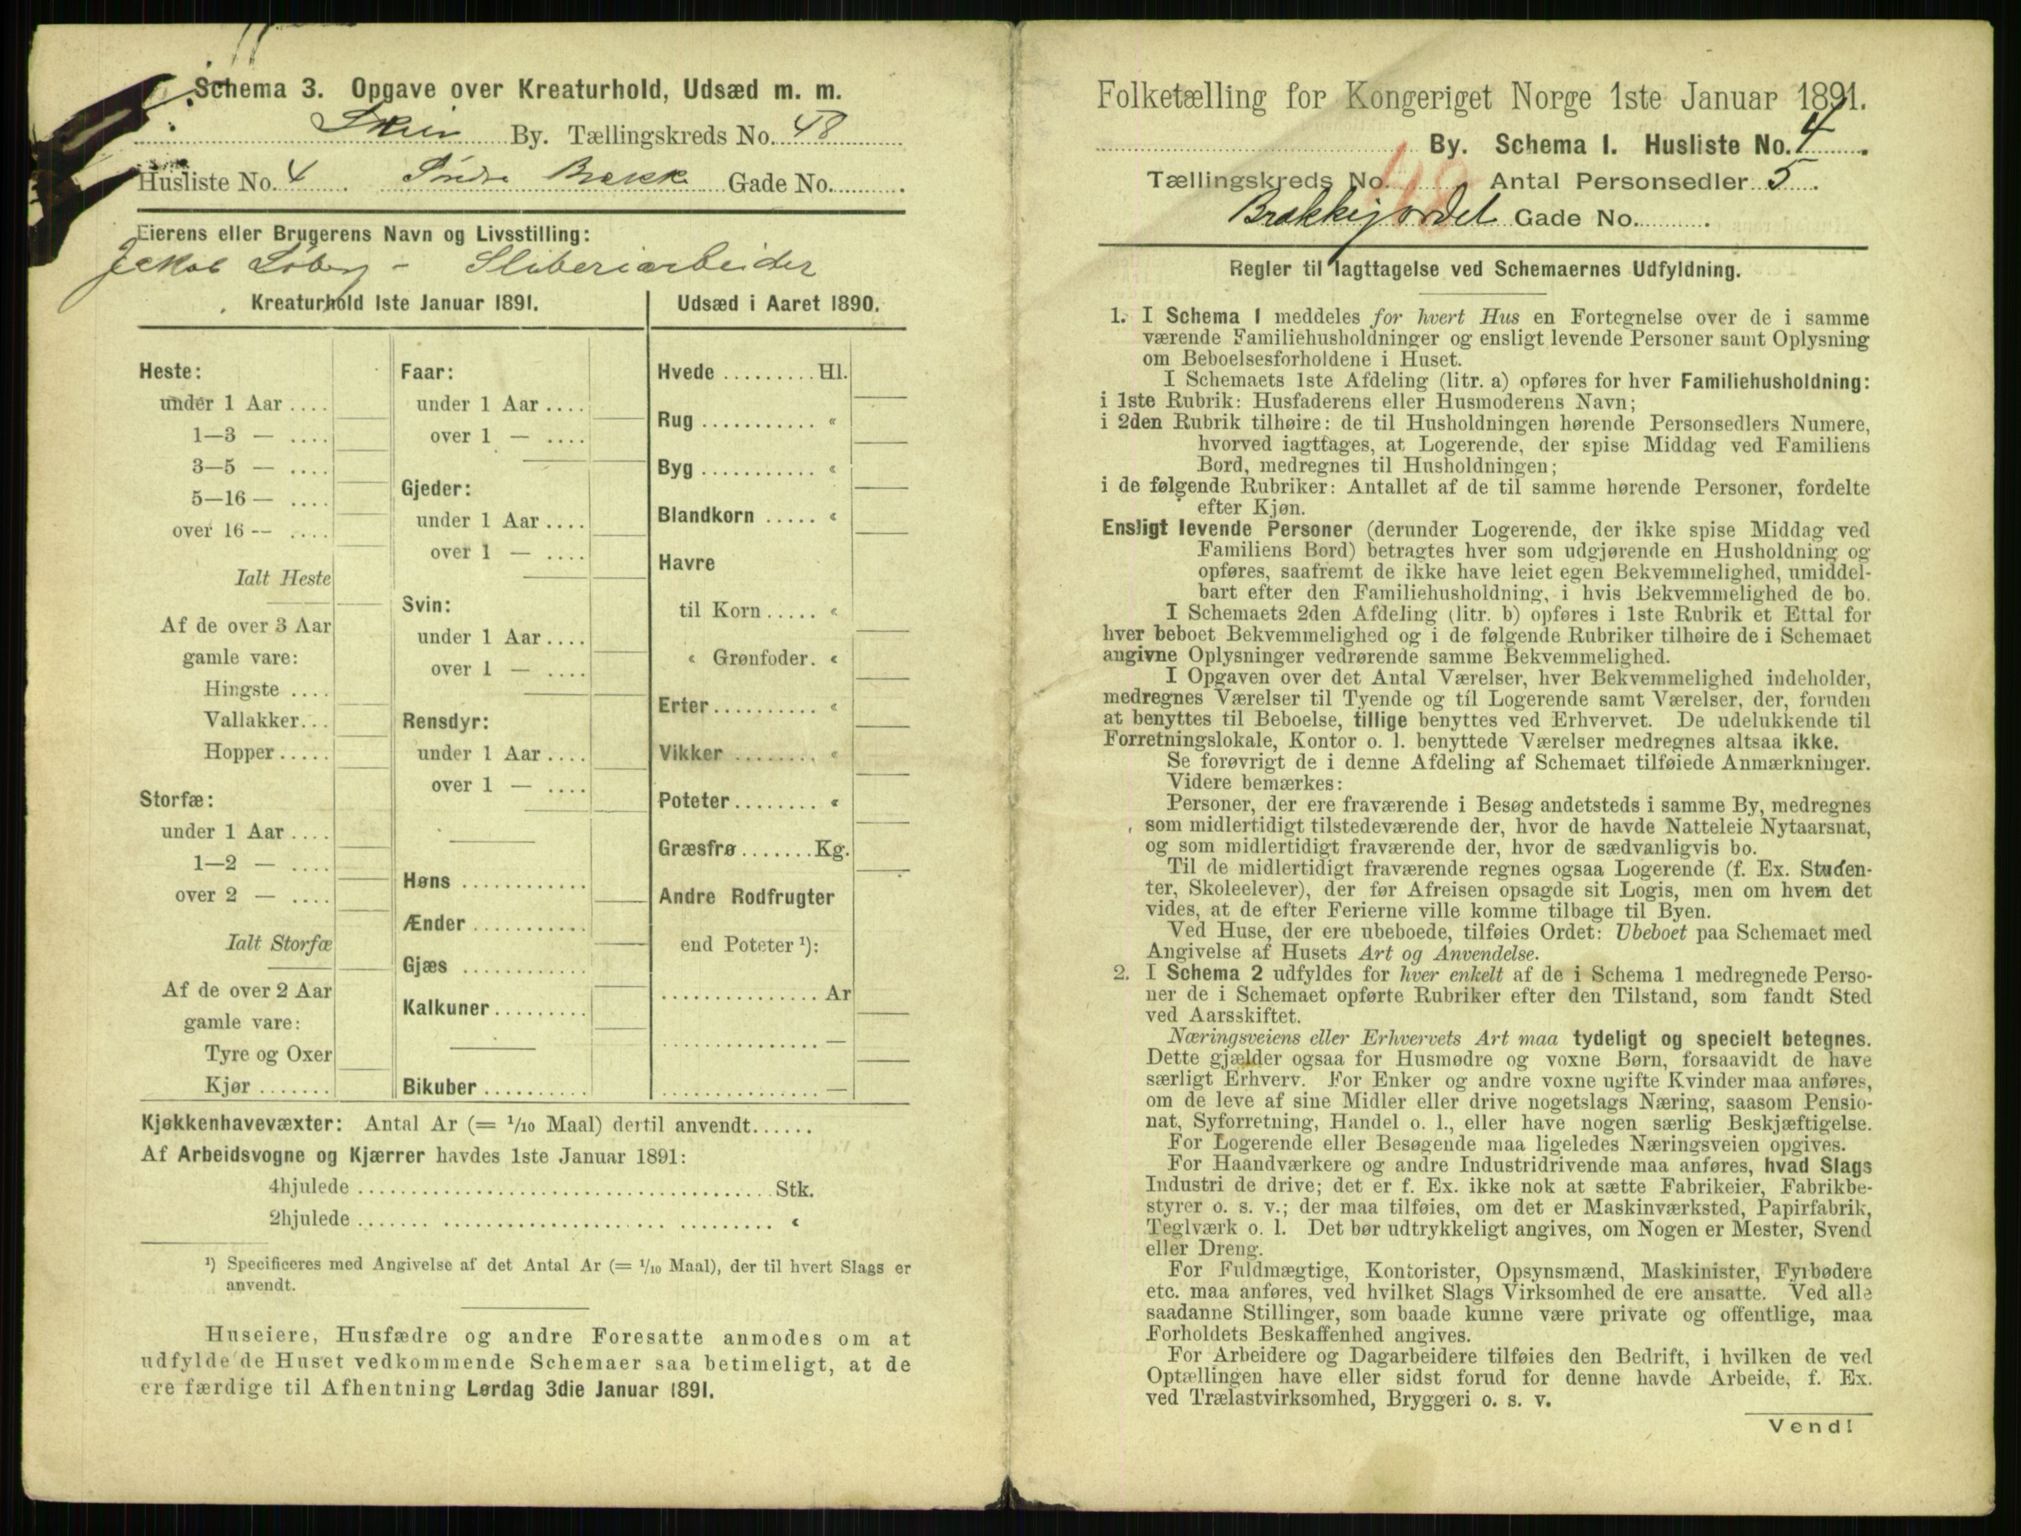 Schema 3. Opgave over Kreaturhold, Udsæd m. m.
Skien By. Tællingskreds No. 48
Husliste No. 4 Søndre Brække Gade No.
Eierens eller Brugerens Navn og Livsstilling:
Jakob Løberg - Sliberiarbeider
Kreaturhold 1ste Januar 1891.
Heste:
under 1 Aar ....
1—3 — ....
3—5 — ....
5—16 — ....
over 16 -- ....
Ialt Heste
Af de over 3 Aar
gamle vare:
Hingste ....
Vallakker...
Hopper.....
Storfæ:
under 1 Aar ....
1—2 — ....
over 2 — ....
Ialt Storfæ
Af de over 2 Aar
gamle vare:
Tyre og Oxer
Kjør .......
Faar:
under 1 Aar ....
over 1 — ....
Gjeder:
under 1 Aar ....
over 1 — ....
Svin:
under 1 Aar ....
over 1 — ....
Rensdyr:
under 1 Aar ....
over 1 — ....
Høns ............
Ænder ...........
Gjæs ............
Kalkuner.........
Bikuber ..........
Udsæd i Aaret 1890.
Hvede .........Hl.
Rug ........... «
Byg ........... «
Blandkorn ..... «
Havre
til Korn ..... «
« Grønfoder. «
Erter.......... «
Vikker ........ «
Poteter........ «
Græsfrø .......Kg.
Andre Rodfrugter
end Poteter ¹):
............... Ar
............... —
............... —
Kjøkkenhavevæxter: Antal Ar (= 1/10 Maal) dertil anvendt......
Af Arbeidsvogne og Kjærrer havdes 1ste Januar 1891:
4hjulede ....................................... Stk.
2hjulede ....................................... «
¹) Specificeres med Angivelse af det Antal Ar (= 1/10 Maal), der til hvert Slags er
anvendt.
Huseiere, Husfædre og andre Foresatte anmodes om at
udfylde de Huset vedkommende Schemaer saa betimeligt, at de
ere færdige til Afhentning Lørdag 3die Januar 1891.
Folketælling for Kongeriget Norge 1ste Januar 1891.
By. Schema I. Husliste No. 4
Tællingskreds No. 48 Antal Personsedler 5
Brækkejordet Gade No.
Regler til Iagttagelse ved Schemaernes Udfyldning.
1. I Schema 1 meddeles for hvert Hus en Fortegnelse over de i samme
værende Familiehusholdninger og ensligt levende Personer samt Oplysning
om Beboelsesforholdene i Huset.
I Schemaets 1ste Afdeling (litr. a) opføres for hver Familiehusholdning:
i 1ste Rubrik: Husfaderens eller Husmoderens Navn;
i 2den Rubrik tilhøire: de til Husholdningen hørende Personsedlers Numere,
hvorved iagttages, at Logerende, der spise Middag ved Familiens
Bord, medregnes til Husholdningen;
i de følgende Rubriker: Antallet af de til samme hørende Personer, fordelte
efter Kjøn.
Ensligt levende Personer (derunder Logerende, der ikke spise Middag ved
Familiens Bord) betragtes hver som udgjørende en Husholdning og
opføres, saafremt de ikke have leiet egen Bekvemmelighed, umiddel-
bart efter den Familiehusholdning, i hvis Bekvemmelighed de bo.
I Schemaets 2den Afdeling (litr. b) opføres i 1ste Rubrik et Ettal for
hver beboet Bekvemmelighed og i de følgende Rubriker tilhøire de i Schemaet
angivne Oplysninger vedrørende samme Bekvemmelighed.
I Opgaven over det Antal Værelser, hver Bekvemmelighed indeholder,
medregnes Værelser til Tyende og til Logerende samt Værelser, der, foruden
at benyttes til Beboelse, tillige benyttes ved Erhvervet. De udelukkende til
Forretningslokale, Kontor o. l. benyttede Værelser medregnes altsaa ikke.
Se forøvrigt de i denne Afdeling af Schemaet tilføiede Anmærkninger.
Videre bemærkes:
Personer, der ere fraværende i Besøg andetsteds i samme By, medregnes
som midlertidigt tilstedeværende der, hvor de havde Natteleie Nytaarsnat,
og som midlertidigt fraværende der, hvor de sædvanligvis bo.
Til de midlertidigt fraværende regnes ogsaa Logerende (f. Ex. Studen-
ter, Skoleelever), der før Afreisen opsagde sit Logis, men om hvem det
vides, at de efter Ferierne ville komme tilbage til Byen.
Ved Huse, der ere ubeboede, tilføies Ordet: Ubeboet paa Schemaet med
Angivelse af Husets Art og Anvendelse.
2. I Schema 2 udfyldes for hver enkelt af de i Schema 1 medregnede Perso-
ner de i Schemaet opførte Rubriker efter den Tilstand, som fandt Sted
ved Aarsskiftet.
Næringsveiens eller Erhvervets Art maa tydeligt og specielt betegnes.
Dette gjælder ogsaa for Husmødre og voxne Børn, forsaavidt de have
særligt Erhverv. For Enker og andre voxne ugifte Kvinder maa anføres,
om de leve af sine Midler eller drive nogetslags Næring, saasom Pensio-
nat, Syforretning, Handel o. l., eller have nogen særlig Beskjæftigelse.
For Logerende eller Besøgende maa ligeledes Næringsveien opgives.
For Haandværkere og andre Industridrivende maa anføres, hvad Slags
Industri de drive; det er f. Ex. ikke nok at sætte Fabrikeier, Fabrikbe-
styrer o. s. v.; der maa tilføies, om det er Maskinværksted, Papirfabrik,
Teglværk o. l. Det bør udtrykkeligt angives, om Nogen er Mester, Svend
eller Dreng.
For Fuldmægtige, Kontorister, Opsynsmænd, Maskinister, Fyrbødere
etc. maa anføres, ved hvilket Slags Virksomhed de ere ansatte. Ved alle
saadanne Stillinger, som baade kunne være private og offentlige, maa
Forholdets Beskaffenhed angives.
For Arbeidere og Dagarbeidere tilføies den Bedrift, i hvilken de ved
Optællingen have eller sidst forud for denne havde Arbeide, f. Ex.
ved Trælastvirksomhed, Bryggeri o. s. v.
Vend!